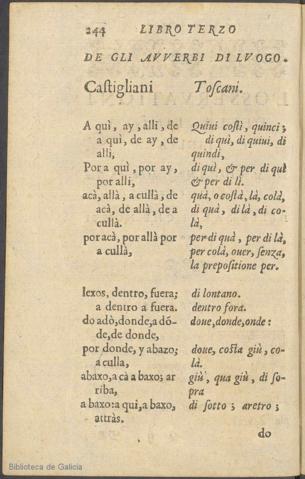 244 LIBRO TERZO
DE GLI AVVERBI DI LVOGO.
Castigliani Toscani.
A quì, ay, alli, de Quiui costì, quinci;
a quì, de ay, de dì quì, di quiui, di
alli, quindi,
Por a quì, por ay, di quì, & per di quì
por alli, & per di lì.
acà, allà, a cullà, de quà, o costà, là, colà,
acà, de allà, de a di quà, di là, di co-
cullà. là,
por acà, por allà por per di quà, per di là,
a cullà, per colà, ouer, senza,
la prepositione per.
lexos, dentro, fuera; di lontano.
a dentro a fuera. dentro fora.
do adò, donde, a dò- doue, donde, onde:
de, de donde,
por donde, y abazo; doue, costa giù, co-
a culla, là.
abaxo, a cà a baxo; ar giù, qua giù, di so-
riba, pra
a baxo: a qui, a baxo, di sotto; aretro;
attràs.
do
Biblioteca de Galicia